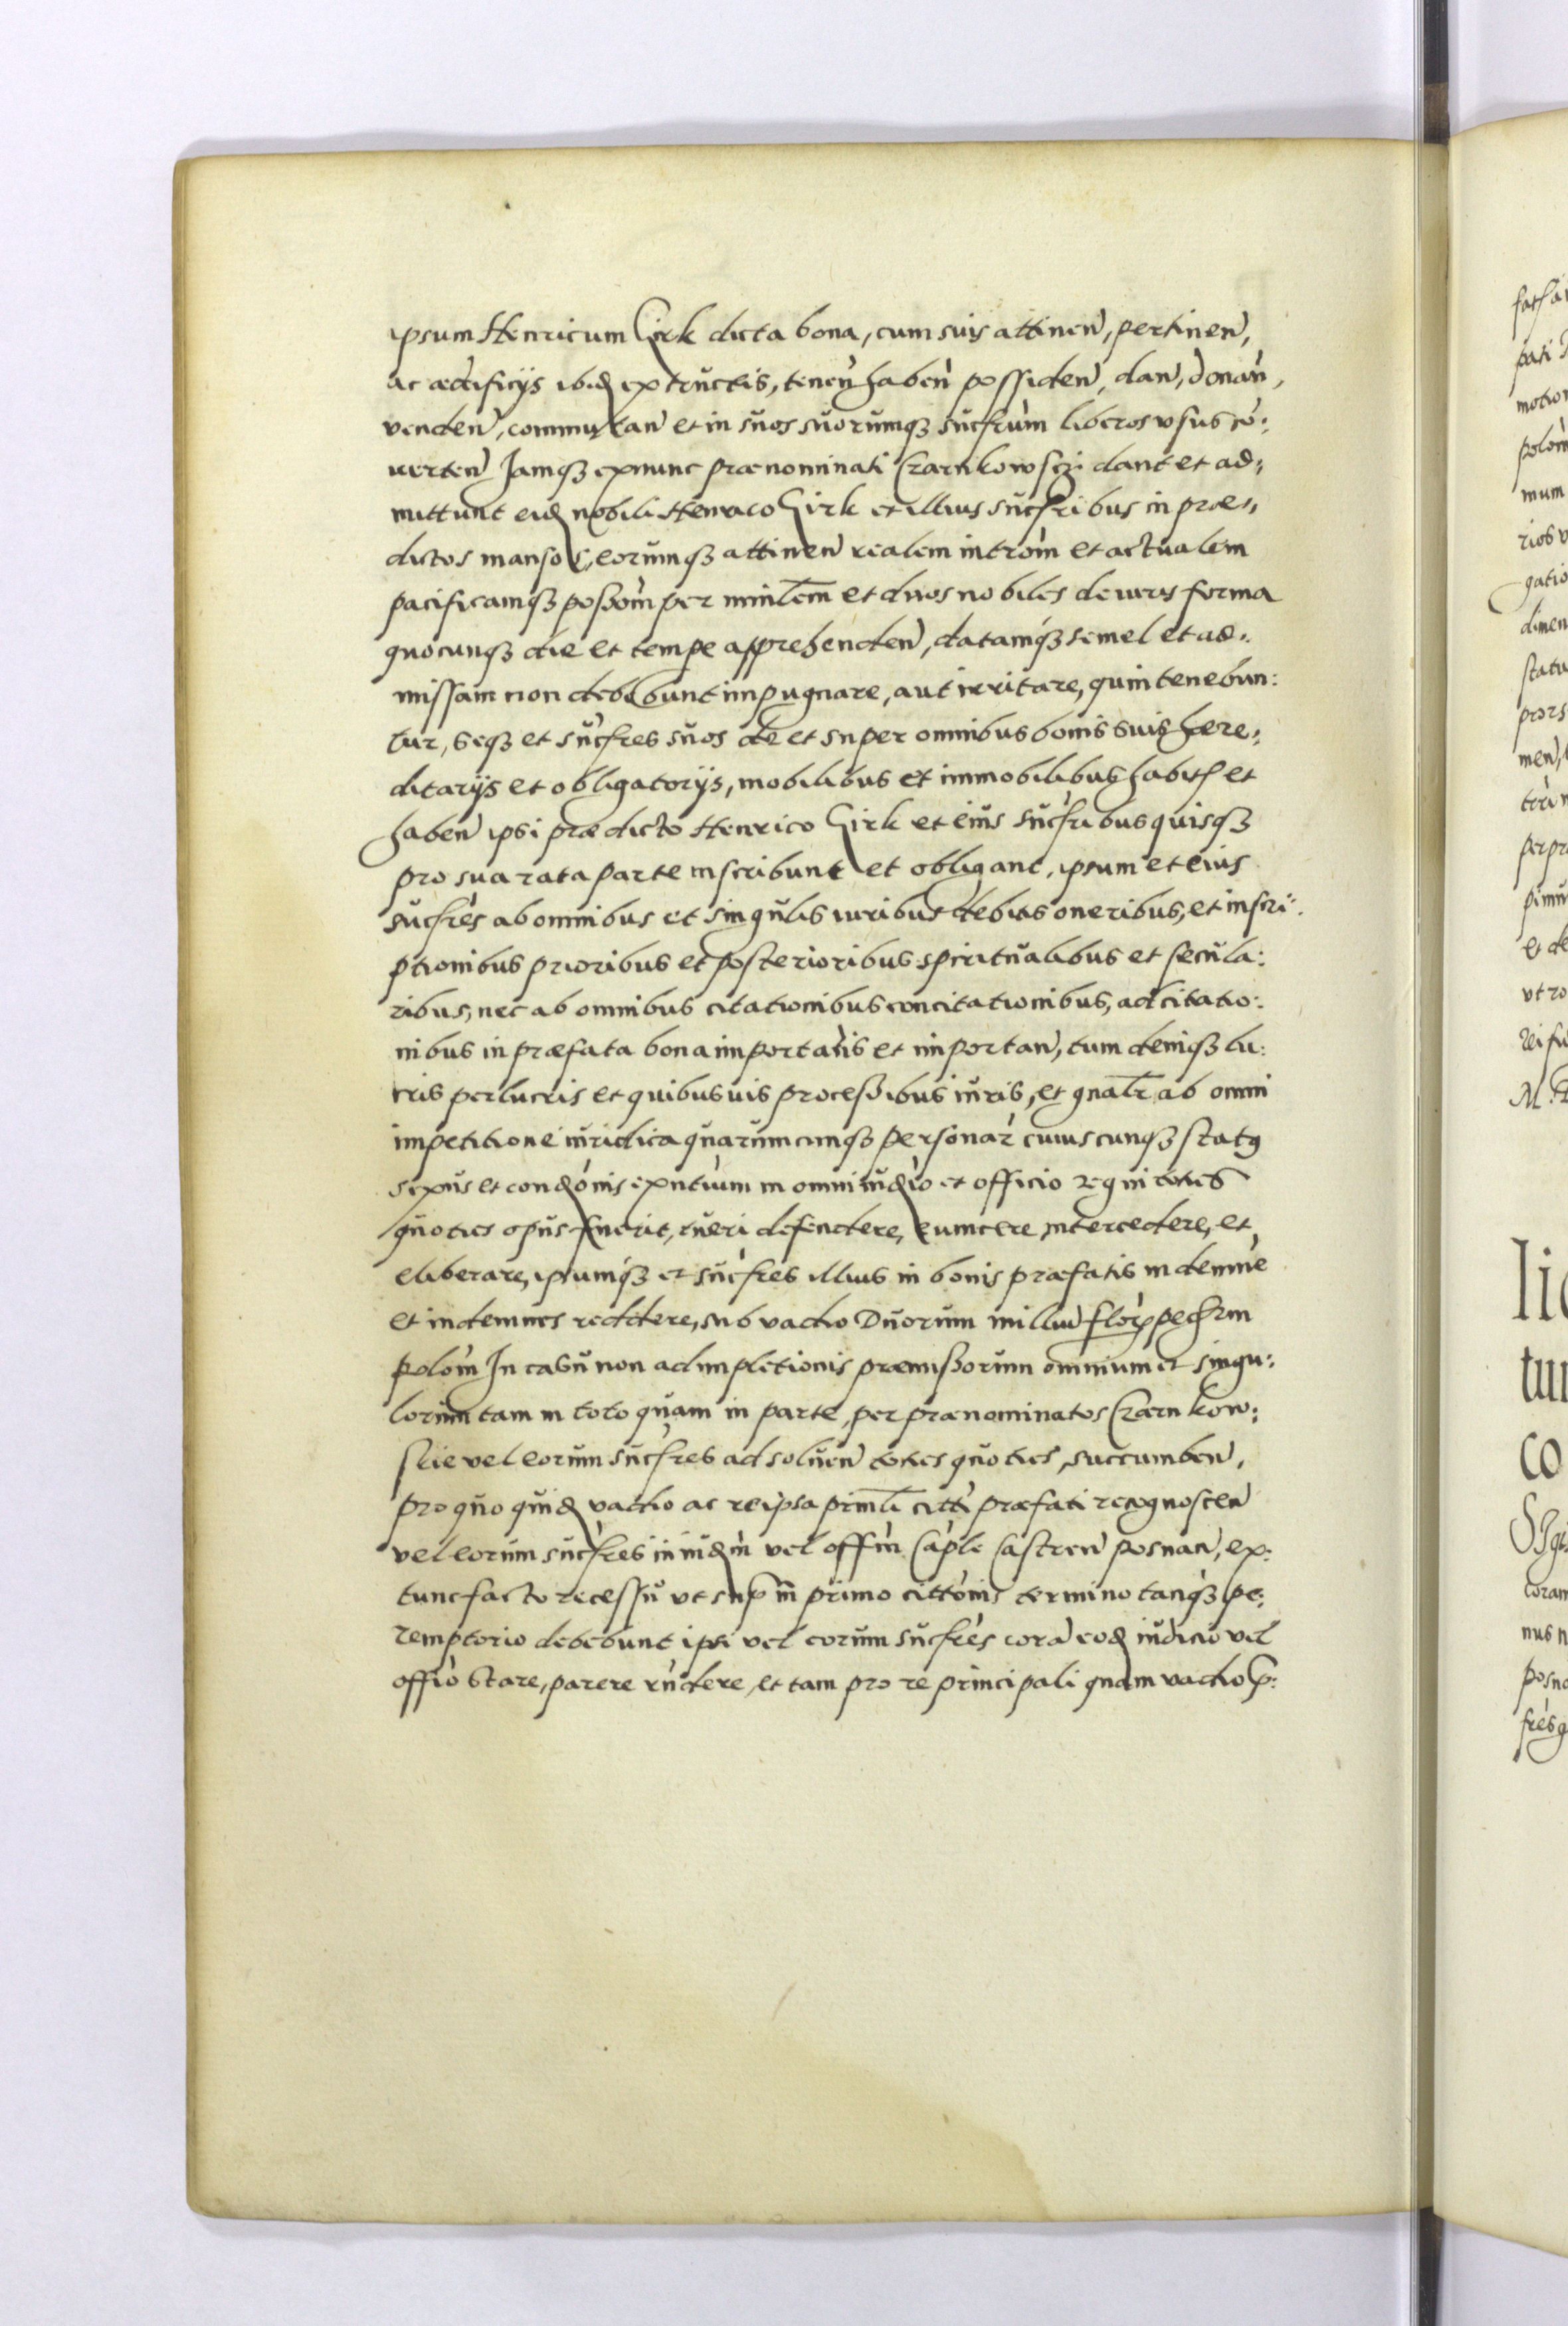 ipsum Henricum Girk dicta bona, cum suis attinen, pertinen,
ac ædificijs ibid extructis, tenen haben possiden, dan, donan,
venden, commutan et in suos suorumqꝫ sucfrum liberos vsus co:
uerten Jamqꝫ exnunc prænominati Czarnkowsczi dant et ad:
mittunt eid nobili Henrico Girk et illius sucfribus in præ:
dictos mansos, eorumqꝫ attinen realem introm et actualem
pacificamqꝫ possom per minlem et duos nobiles de iuris forma
quocunqꝫ die et tempe apprehenden, datamqꝫ semel et ad:
missam non debebunt impugnare, aut irritare, quin tenebun:
tur, seqꝫ et sucfres suos de et super omnibus bonis suis hære:
ditarijs et obligatorijs, mobilibus et immobilibus habit et
haben ipsi prædicto Henrico Girk et eius sucfribus quisqꝫ
pro sua rata parte inscribunt et obligant, ipsum et eius
sucfres ab omnibus et singulis iuribus debitis oneribus, et inscri:
ptionibus prioribus et posterioribus spiritualibus et secula:
ribus, nec ab omnibus citationibus concitationibus, adcitatio:
nibus in præfata bona importatis et importan, tum deniqꝫ lu:
cris perlucris et quibusuis processibus iuris, et gnalr ab omni
impetitione iuridica quarumcunqꝫ personar cuiuscunqꝫ statꝰ
sexus et condonis exntium in omni iudio et officio regni toties
quoties opus fuerit, tueri defendere, euincere intercedere, et
eliberare, ipsumqꝫ et sucfres illius in bonis præfatis indemne
et indemnes reddere, sub vadio Duorum milliu flor pechun
polom In casu non adimpletionis præmissorum omnium et singu:
lorum tam in toto quam in parte, per prænominatos Czarnkow:
skie vel eorum sucfres ad soluen toties quoties, succumben,
pro quo quid vadio ac re ipsa prinli citti præfati recognoscen
vel eorum sucfres in iudm vel offm Caple Castren posnan, ex:
tunc facto recessu vt sup in primo cittonis termino tanqꝫ pe:
remptorio debebunt ipsi vel eorum sucfres cora eod iudicio vel
offio stare, parere rndere, et tam pro re principali quam vadio p: